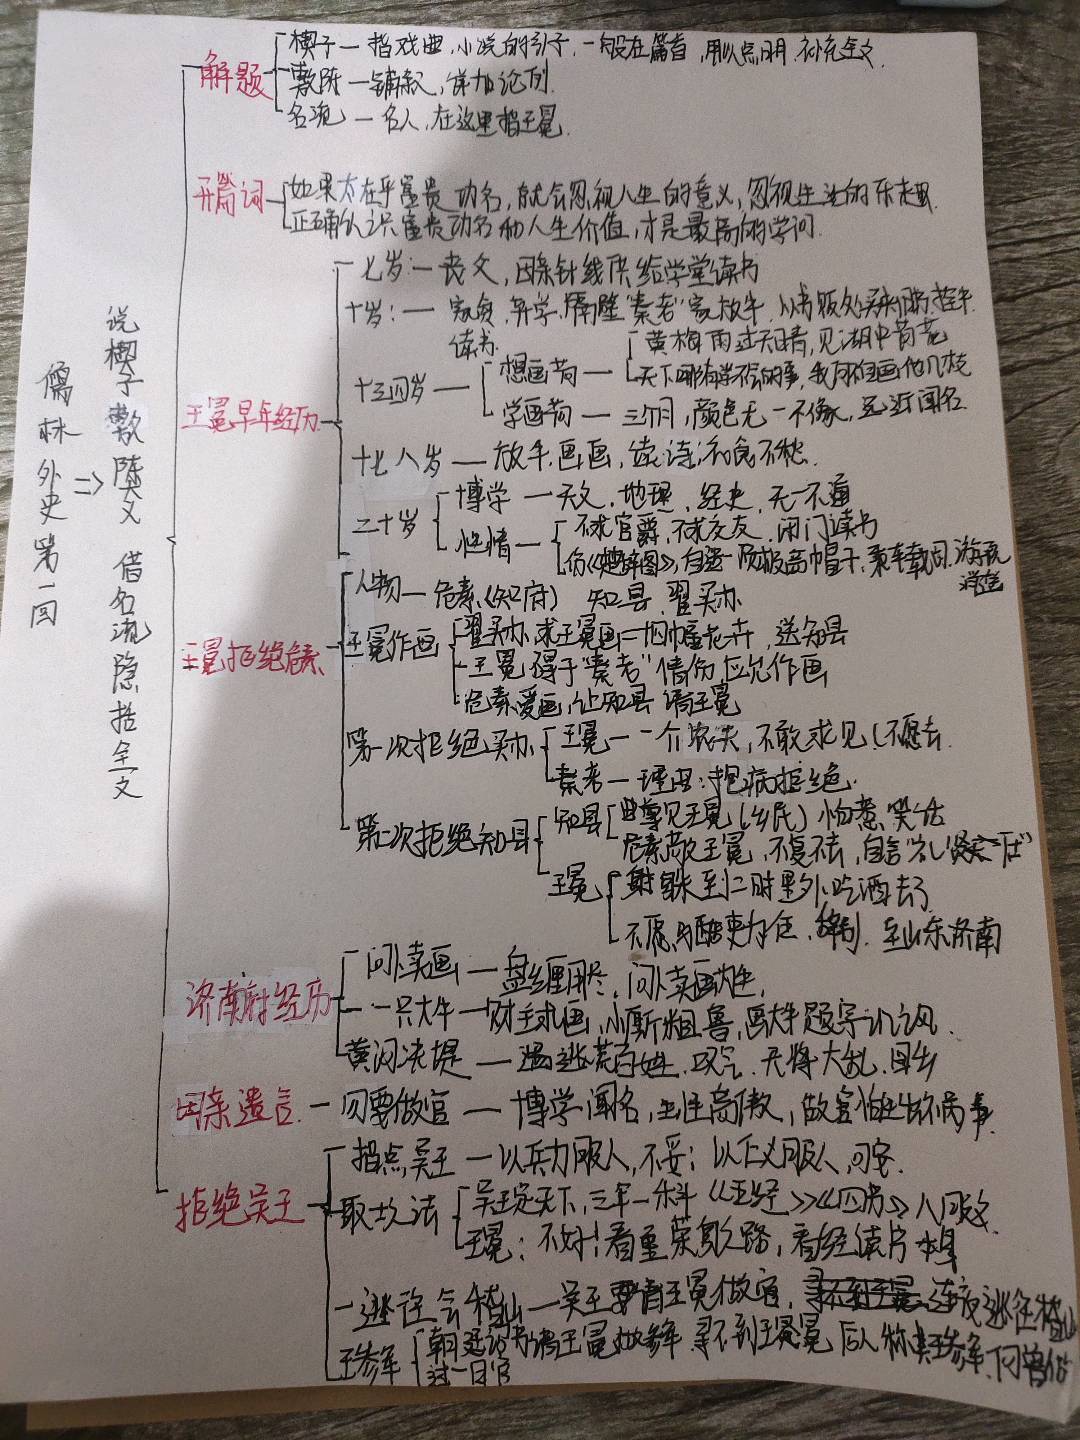 儒林外史第一回
说楔子敷陈大义 借名流隐括全文
解题
楔子—指戏曲,小说的引子.一般在篇首,用以点明.补充全文.
敷陈—铺叙,详加论列.
名流—名人,在这里指王冕.
开篇词
如果太在乎富贵功名,就会忽视人生的意义,忽视生活的乐趣.
正确认识富贵功名和人生价值,才是最高的学问.
王冕早年经历
七岁:—丧父,母亲针线供给学堂读书
十岁:—家贫,弃学,隔壁"秦老"家放牛.
读书.
十三四岁—
想画荷—
黄梅雨过天晴,见湖中荷花
天下哪有学不会的事,我何不自画他几枝
学画荷—三个月,颜色无一不像,远近闻名
十七八岁—放牛,画画,读诗,衣食不愁.
二十岁
博学—天文,地理,经史,无一不通
性情—
不求官爵,不求交友,闭门读书
仿《楚辞图》,自造一顶极高帽子,乘车载母.游玩
王冕拒绝危素
人物—危素(知府) 知县,翟买办
王冕作画
翟买办求王冕画二十四幅花卉,送知县
王冕碍于"秦老"情份应允作画
危素爱画,让知县请王冕
第一次拒绝买办
王冕—一个农夫,不敢求见(不愿去.
秦老—理由:抱病拒绝.
第二次拒绝知县
知县
屈尊见王冕(乡民)怕惹笑话
危素敬王冕,不复不去,自言"礼贤下士"
王冕
躲至二十里外吃酒去了
不愿与酷吏为伍.辞别.至山东济南
济南府经历
问卜卖画—盘缠用尽,问卜卖画为生.
一只大牛—财主求画,小厮粗鲁,画大牛题字以讥讽.
黄河决堤—遇逃荒百姓.叹气.天将大乱.回乡
母亲遗言.—勿要做官—博学闻名,生性高傲,做官怕生出祸事.
拒绝吴王
指点吴王—以兵力服人,不妥;以仁义服人,可安.
取士之法
吴王定天下,三年一科《五经》《四书》八股文
王冕:不好!看重荣身之路,看轻读书本身
逃往会稽山—吴王要请王冕做官,连夜逃往稽山
王参军
朝廷诏书请王冕做参军.寻不到王冕 后人称其王参军,何曾做
过一日官